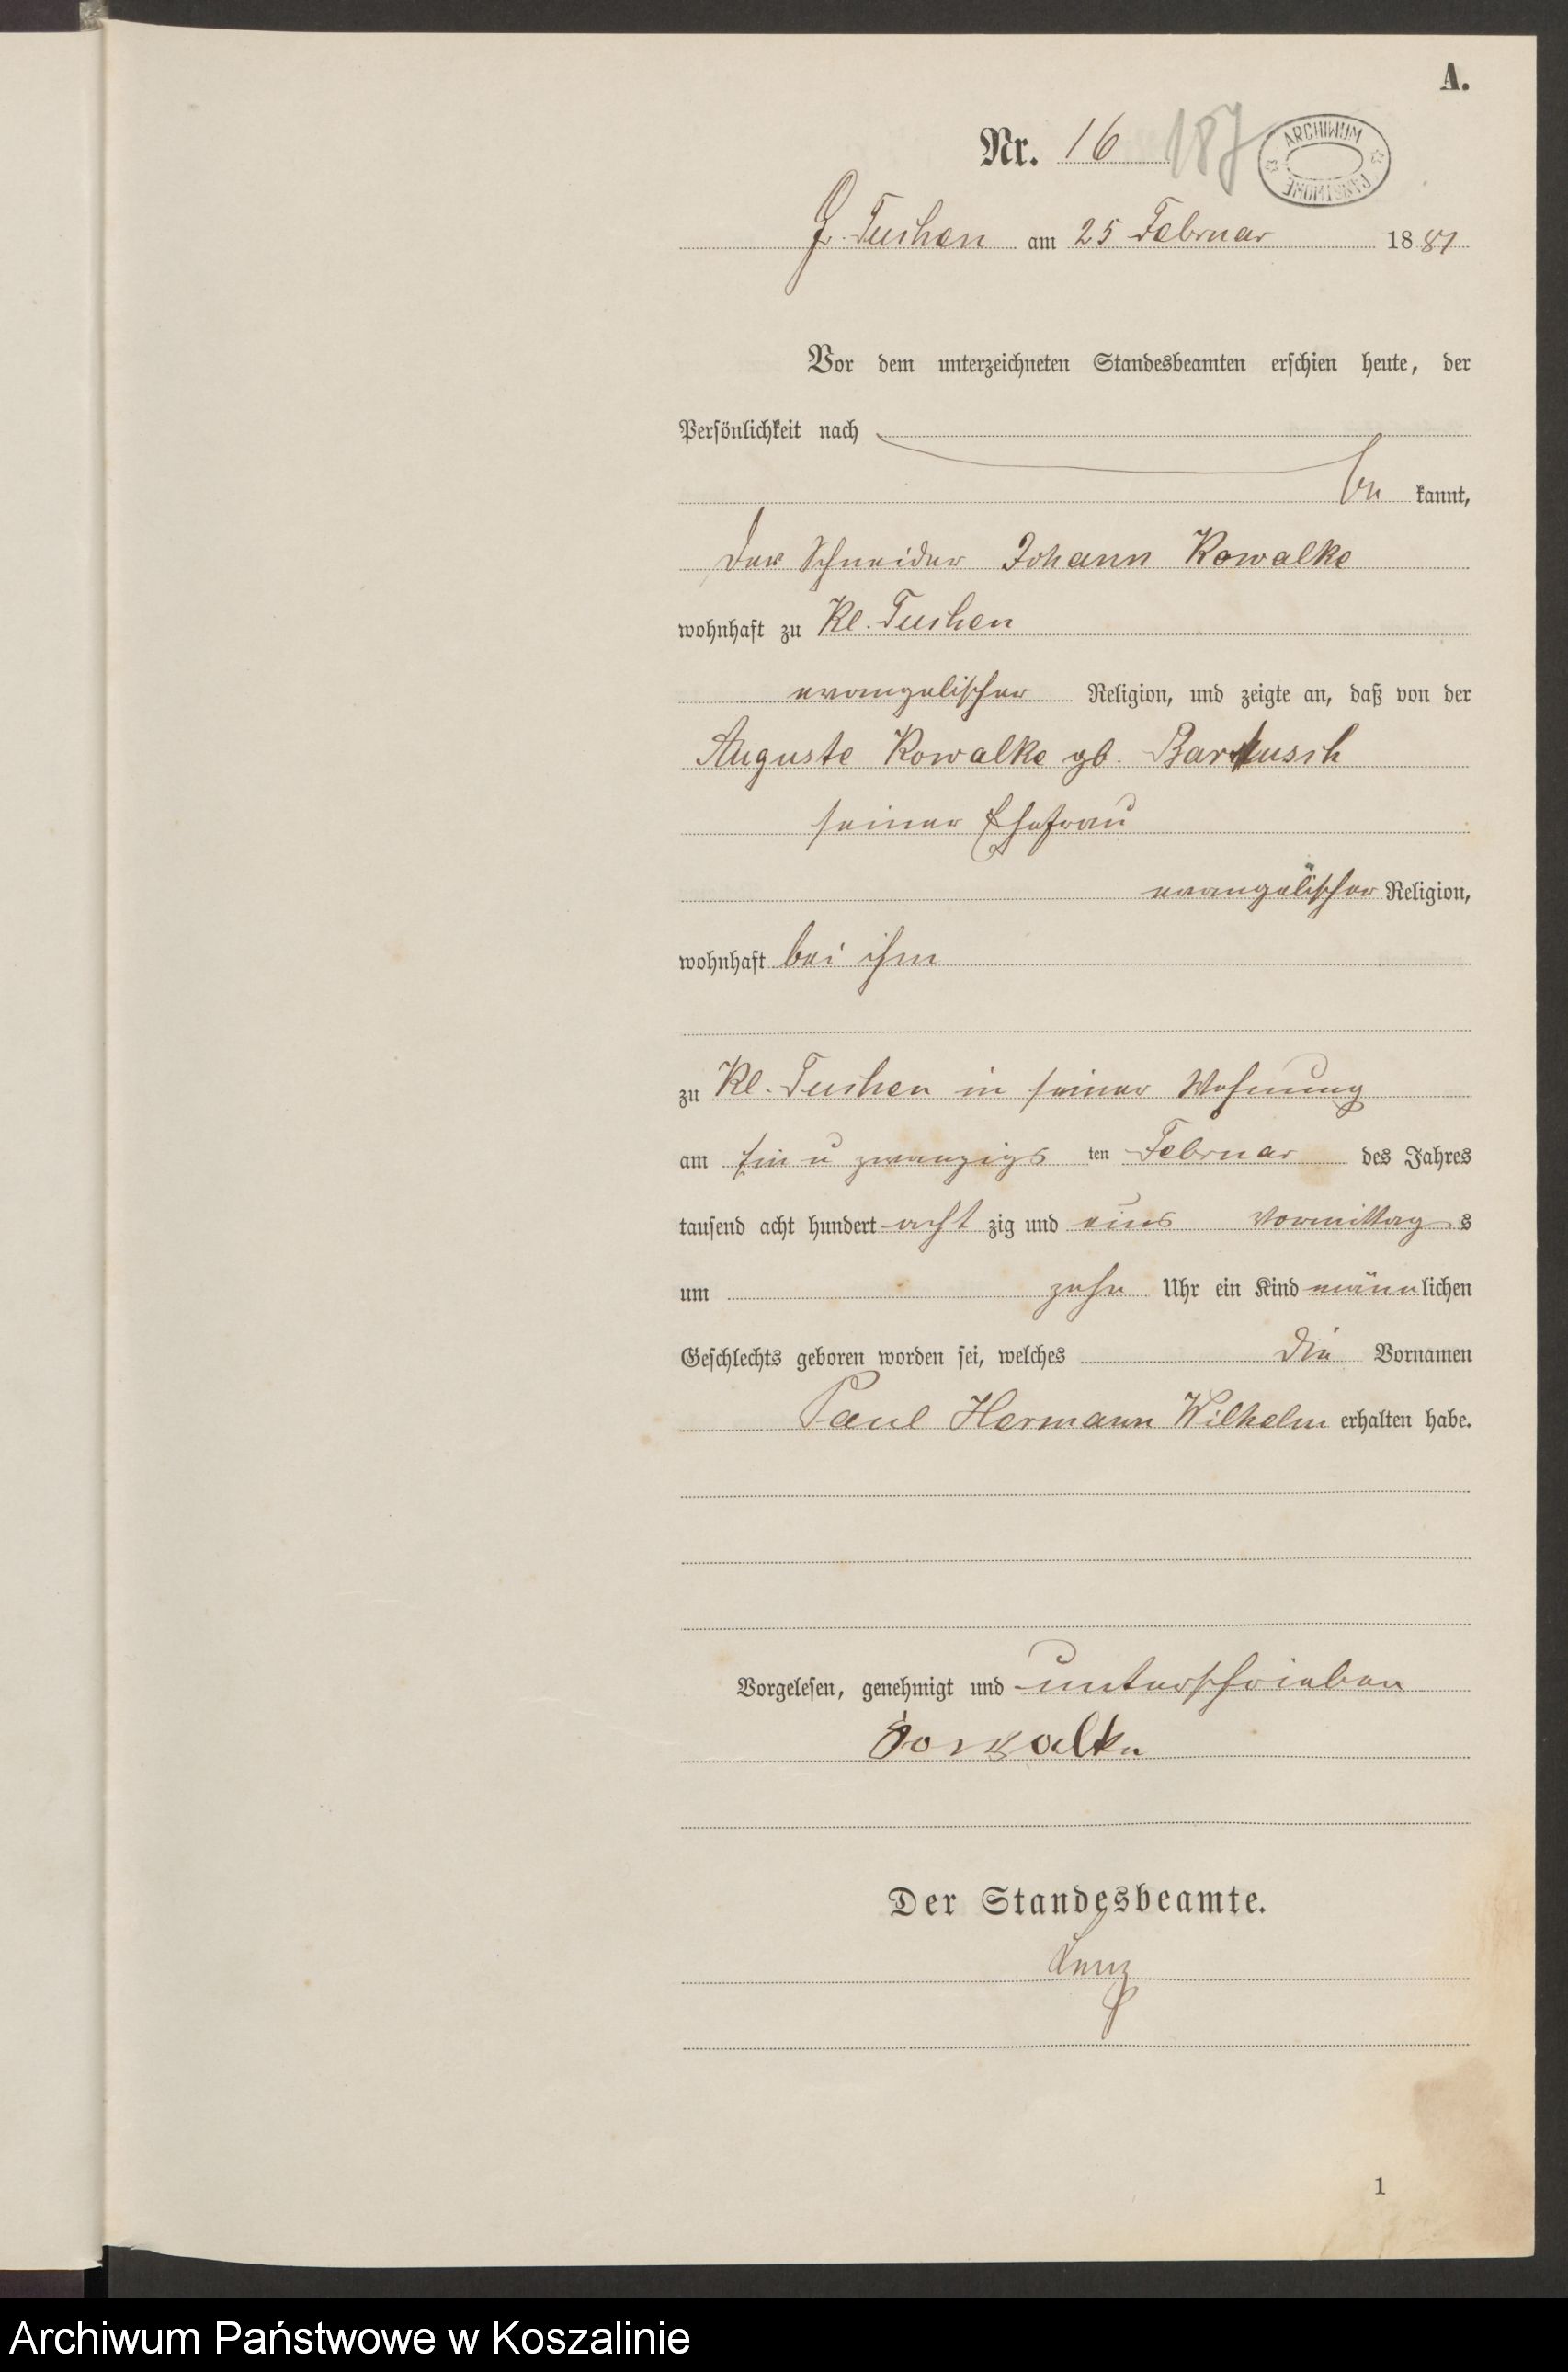 A.
Nr. 16 187
ARCHIWUM PAŃSTWOWE
Gr. Tuchen am 25 Februar 1881
Vor dem unterzeichneten Standesbeamten erschien heute, der
Persönlichkeit nach
be kannt,
der Schneider Johann Kowalke
wohnhaft zu Kl. Tuchen
evangelischer Religion, und zeigte an, daß von der
Auguste Kowalke gb.
seiner Ehefrau
evangelischer Religion,
wohnhaft bei ihm
zu Kl. Tuchen in seiner Wohnung
am Ein u zwanzigs ten Februar des Jahres
tausend acht hundert acht zig und eins Vormittag s
um zehn Uhr ein Kind männ lichen
Geschlechts geboren worden sei, welches die Vornamen
Paul Hermann Wilhelm erhalten habe.
Vorgelesen, genehmigt und unterschrieben
Der Standesbeamte.
Lenz
1
Archiwum Państwowe w Koszalinie